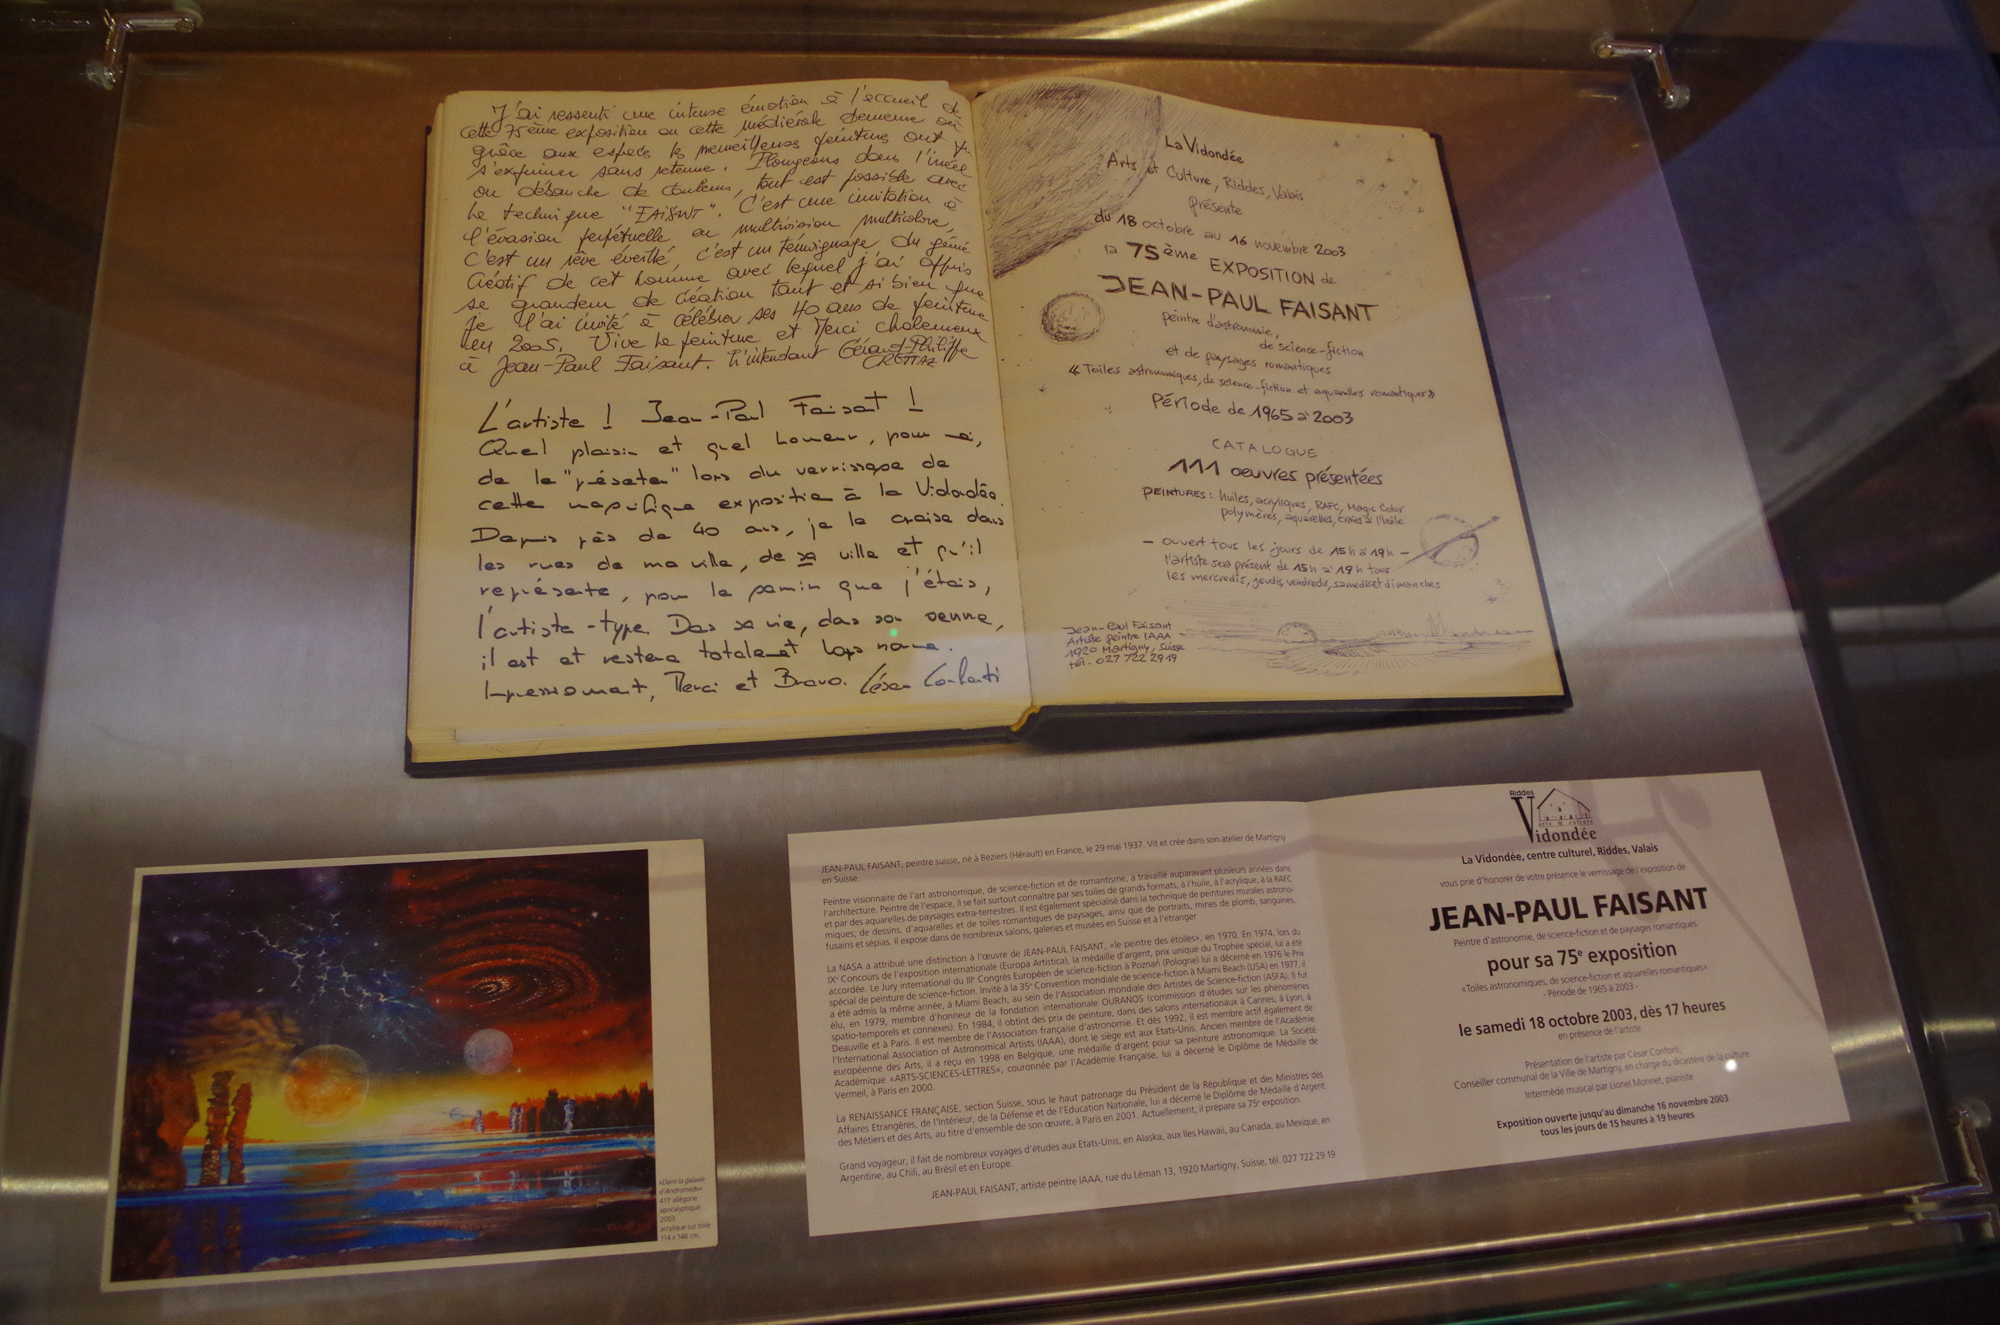 J'ai ressenti une intense émotion à l'accueil de
cette 75ème exposition en cette médiévale demeure où
grâce aux espaces les merveilleuses peintures ont pu
s'exprimer sans retenue. Plongeons dans l'irréel
ou débauche de couleurs, tout est possible avec
la technique "FAISANT". C'est une invitation à
l'évasion perpétuelle en multivision multicolore,
c'est un rêve éveillé, c'est un témoignage du génie
créatif de cet homme avec lequel j'ai appris
se grandeur de création tant et si bien que
je l'ai invité à célébrer ses 40 ans de peinture
en 2005. Vive la peinture et Merci chaleureux
à Jean-Paul Faisant. L'intendant Gérard-Philippe
CRETTAZ
L'artiste ! Jean-Paul Faisant !
Quel plaisir et quel honneur, pour moi,
de le "présenter" lors du vernissage de
cette magnifique exposition à la Vidondée
Depuis près de 40 ans, je le croise dans
les rues de ma ville, de sa ville et qu'il
représente, pour le gamin que j'étais,
l'artiste-type. Dans sa vie, dans son oeuvre,
il est et restera totalement hors norme.
Impressionnant, Merci et Bravo. César Conforti
La Vidondée
Arts et Culture, Riddes, Valais
présente
du 18 octobre au 16 novembre 2003
la 75ème EXPOSITION de
JEAN-PAUL FAISANT
peintre d'astronomie,
de science-fiction
et de paysages romantiques
«Toiles astronomiques, de science-fiction et aquarelles romantiques»
Période de 1965 à 2003
CATALOGUE
111 oeuvres présentées
PEINTURES : huiles, acryliques, RAFC, Magic Color
polymères, aquarelles, craies à l'huile
- ouvert tous les jours de 15h à 19h -
l'artiste sera présent de 15h à 19h tous
les mercredis, jeudis, vendredis, samedis et dimanches
Jean-Paul Faisant
Artiste peintre IAAA
1920 Martigny, Suisse
tél. 027 722 29 19
«Dans la galaxie
d'Andromède»
411e allégorie
apocalyptique
2003
acrylique sur toile
114 x 146 cm.
JEAN-PAUL FAISANT, peintre suisse, né à Béziers (Hérault) en France, le 29 mai 1937. Vit et crée dans son atelier de Martigny
en Suisse.
Peintre visionnaire de l'art astronomique, de science-fiction et de romantisme, a travaillé auparavant plusieurs années dans
l'architecture. Peintre de l'espace, il se fait surtout connaître par ses toiles de grands formats, à l'huile, à l'acrylique, à la RAFC
et par des aquarelles de paysages extra-terrestres. Il est également spécialisé dans la technique de peintures murales astrono-
miques; de dessins, d'aquarelles et de toiles romantiques de paysages, ainsi que de portraits, mines de plomb, sanguines,
fusains et sépias. Il expose dans de nombreux salons, galeries et musées en Suisse et à l'étranger
La NASA a attribué une distinction à l'œuvre de JEAN-PAUL FAISANT, «le peintre des étoiles», en 1970. En 1974, lors du
IXe Concours de l'exposition internationale (Europa Artistica), la médaille d'argent, prix unique du Trophée spécial, lui a été
accordée. Le Jury international du IIIe Congrès Européen de science-fiction à Poznań (Pologne) lui a décerné en 1976 le Prix
spécial de peinture de science-fiction. Invité à la 35e Convention mondiale de science-fiction à Miami Beach (USA) en 1977, il
a été admis la même année, à Miami Beach, au sein de l'Association mondiale des Artistes de Science-fiction (ASFA). Il fut
élu, en 1979, membre d'honneur de la fondation internationale OURANOS (commission d'études sur les phénomènes
spatio-temporels et connexes). En 1984, il obtint des prix de peinture, dans des salons internationaux à Cannes, à Lyon, à
Deauville et à Paris. Il est membre de l'Association française d'astronomie. Et dès 1992, il est membre actif également de
l'International Association of Astronomical Artists (IAAA), dont le siège est aux Etats-Unis. Ancien membre de l'Académie
européenne des Arts, il a reçu en 1998 en Belgique, une médaille d'argent pour sa peinture astronomique. La Société
Académique «ARTS-SCIENCES-LETTRES», couronnée par l'Académie Française, lui a décerné le Diplôme de Médaille de
Vermeil, à Paris en 2000.
La RENAISSANCE FRANÇAISE, section Suisse, sous le haut patronage du Président de la République et des Ministres des
Affaires Etrangères, de l'Intérieur, de la Défense et de l'Education Nationale, lui a décerné le Diplôme de Médaille d'Argent
des Métiers et des Arts, au titre d'ensemble de son œuvre, à Paris en 2001. Actuellement, il prépare sa 75e exposition.
Grand voyageur, il fait de nombreux voyages d'études aux Etats-Unis, en Alaska, aux Iles Hawaii, au Canada, au Mexique, en
Argentine, au Chili, au Brésil et en Europe.
JEAN-PAUL FAISANT, artiste peintre IAAA, rue du Léman 13, 1920 Martigny, Suisse, tél. 027 722 29 19
Riddes
arts & culture
Vidondée
La Vidondée, centre culturel, Riddes, Valais
vous prie d'honorer de votre présence le vernissage de l'exposition de
JEAN-PAUL FAISANT
Peintre d'astronomie, de science-fiction et de paysages romantiques
pour sa 75e exposition
«Toiles astronomiques, de science-fiction et aquarelles romantiques»
- Période de 1965 à 2003 -
le samedi 18 octobre 2003, dès 17 heures
en présence de l'artiste
Présentation de l'artiste par César Conforti,
Conseiller communal de la Ville de Martigny, en charge du dicastère de la culture
Intermède musical par Lionel Monnet, pianiste
Exposition ouverte jusqu'au dimanche 16 novembre 2003
tous les jours de 15 heures à 19 heures